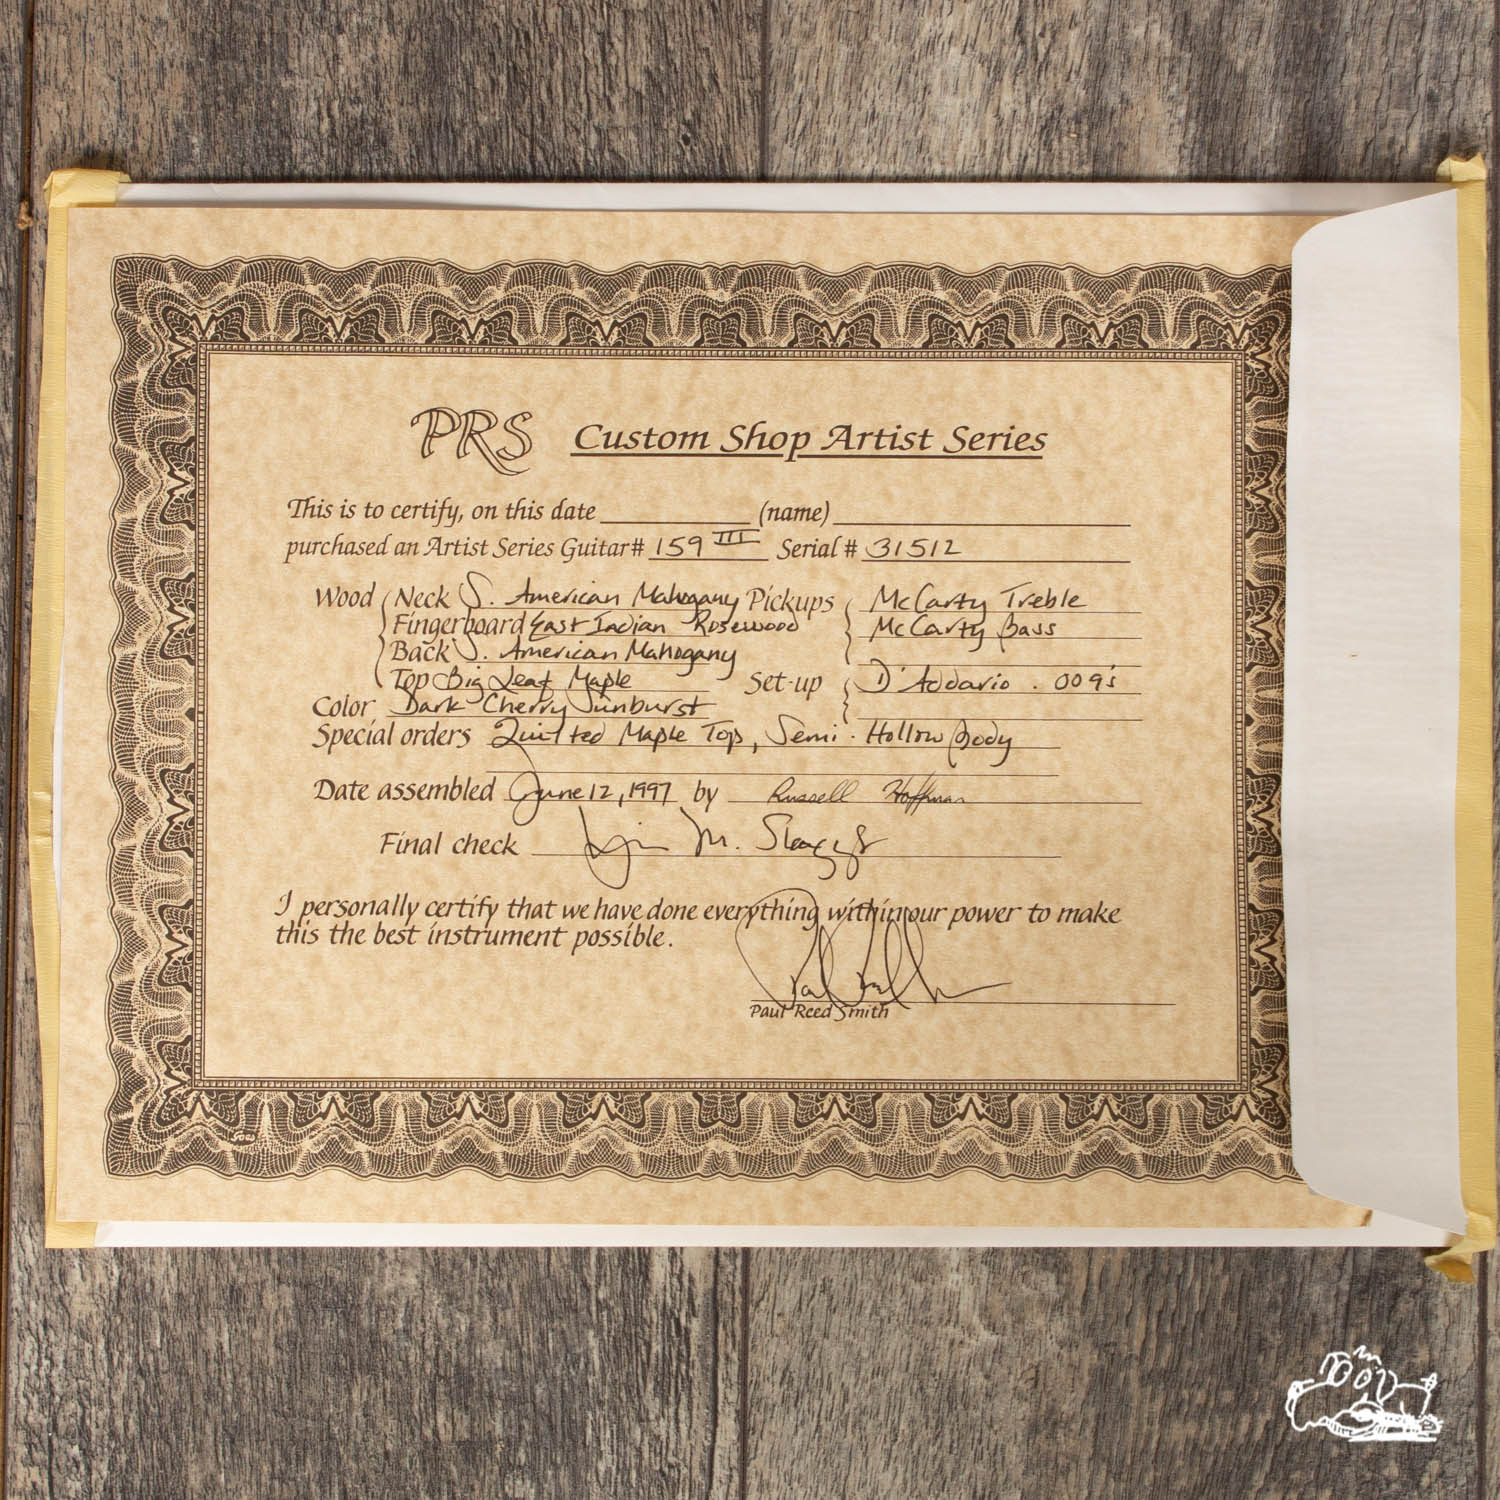 PRS Custom Shop Artist Series
This is to certify, on this date (name)
purchased an Artist Series Guitar# 159 III Serial # 31512
Wood Neck S. American Mahogany Pickups McCarty Treble
Fingerboard East Indian Rosewood McCarty Bass
Back S. American Mahogany
Top Big Leaf Maple Set-up D'Addario .009's
Color Dark Cherry Sunburst
Special orders Quilted Maple Top, Semi-Hollow Body
Date assembled June 12, 1997 by Russell Hoffman
Final check M.
I personally certify that we have done everything within our power to make
this the best instrument possible.
Paul Reed Smith
Goes